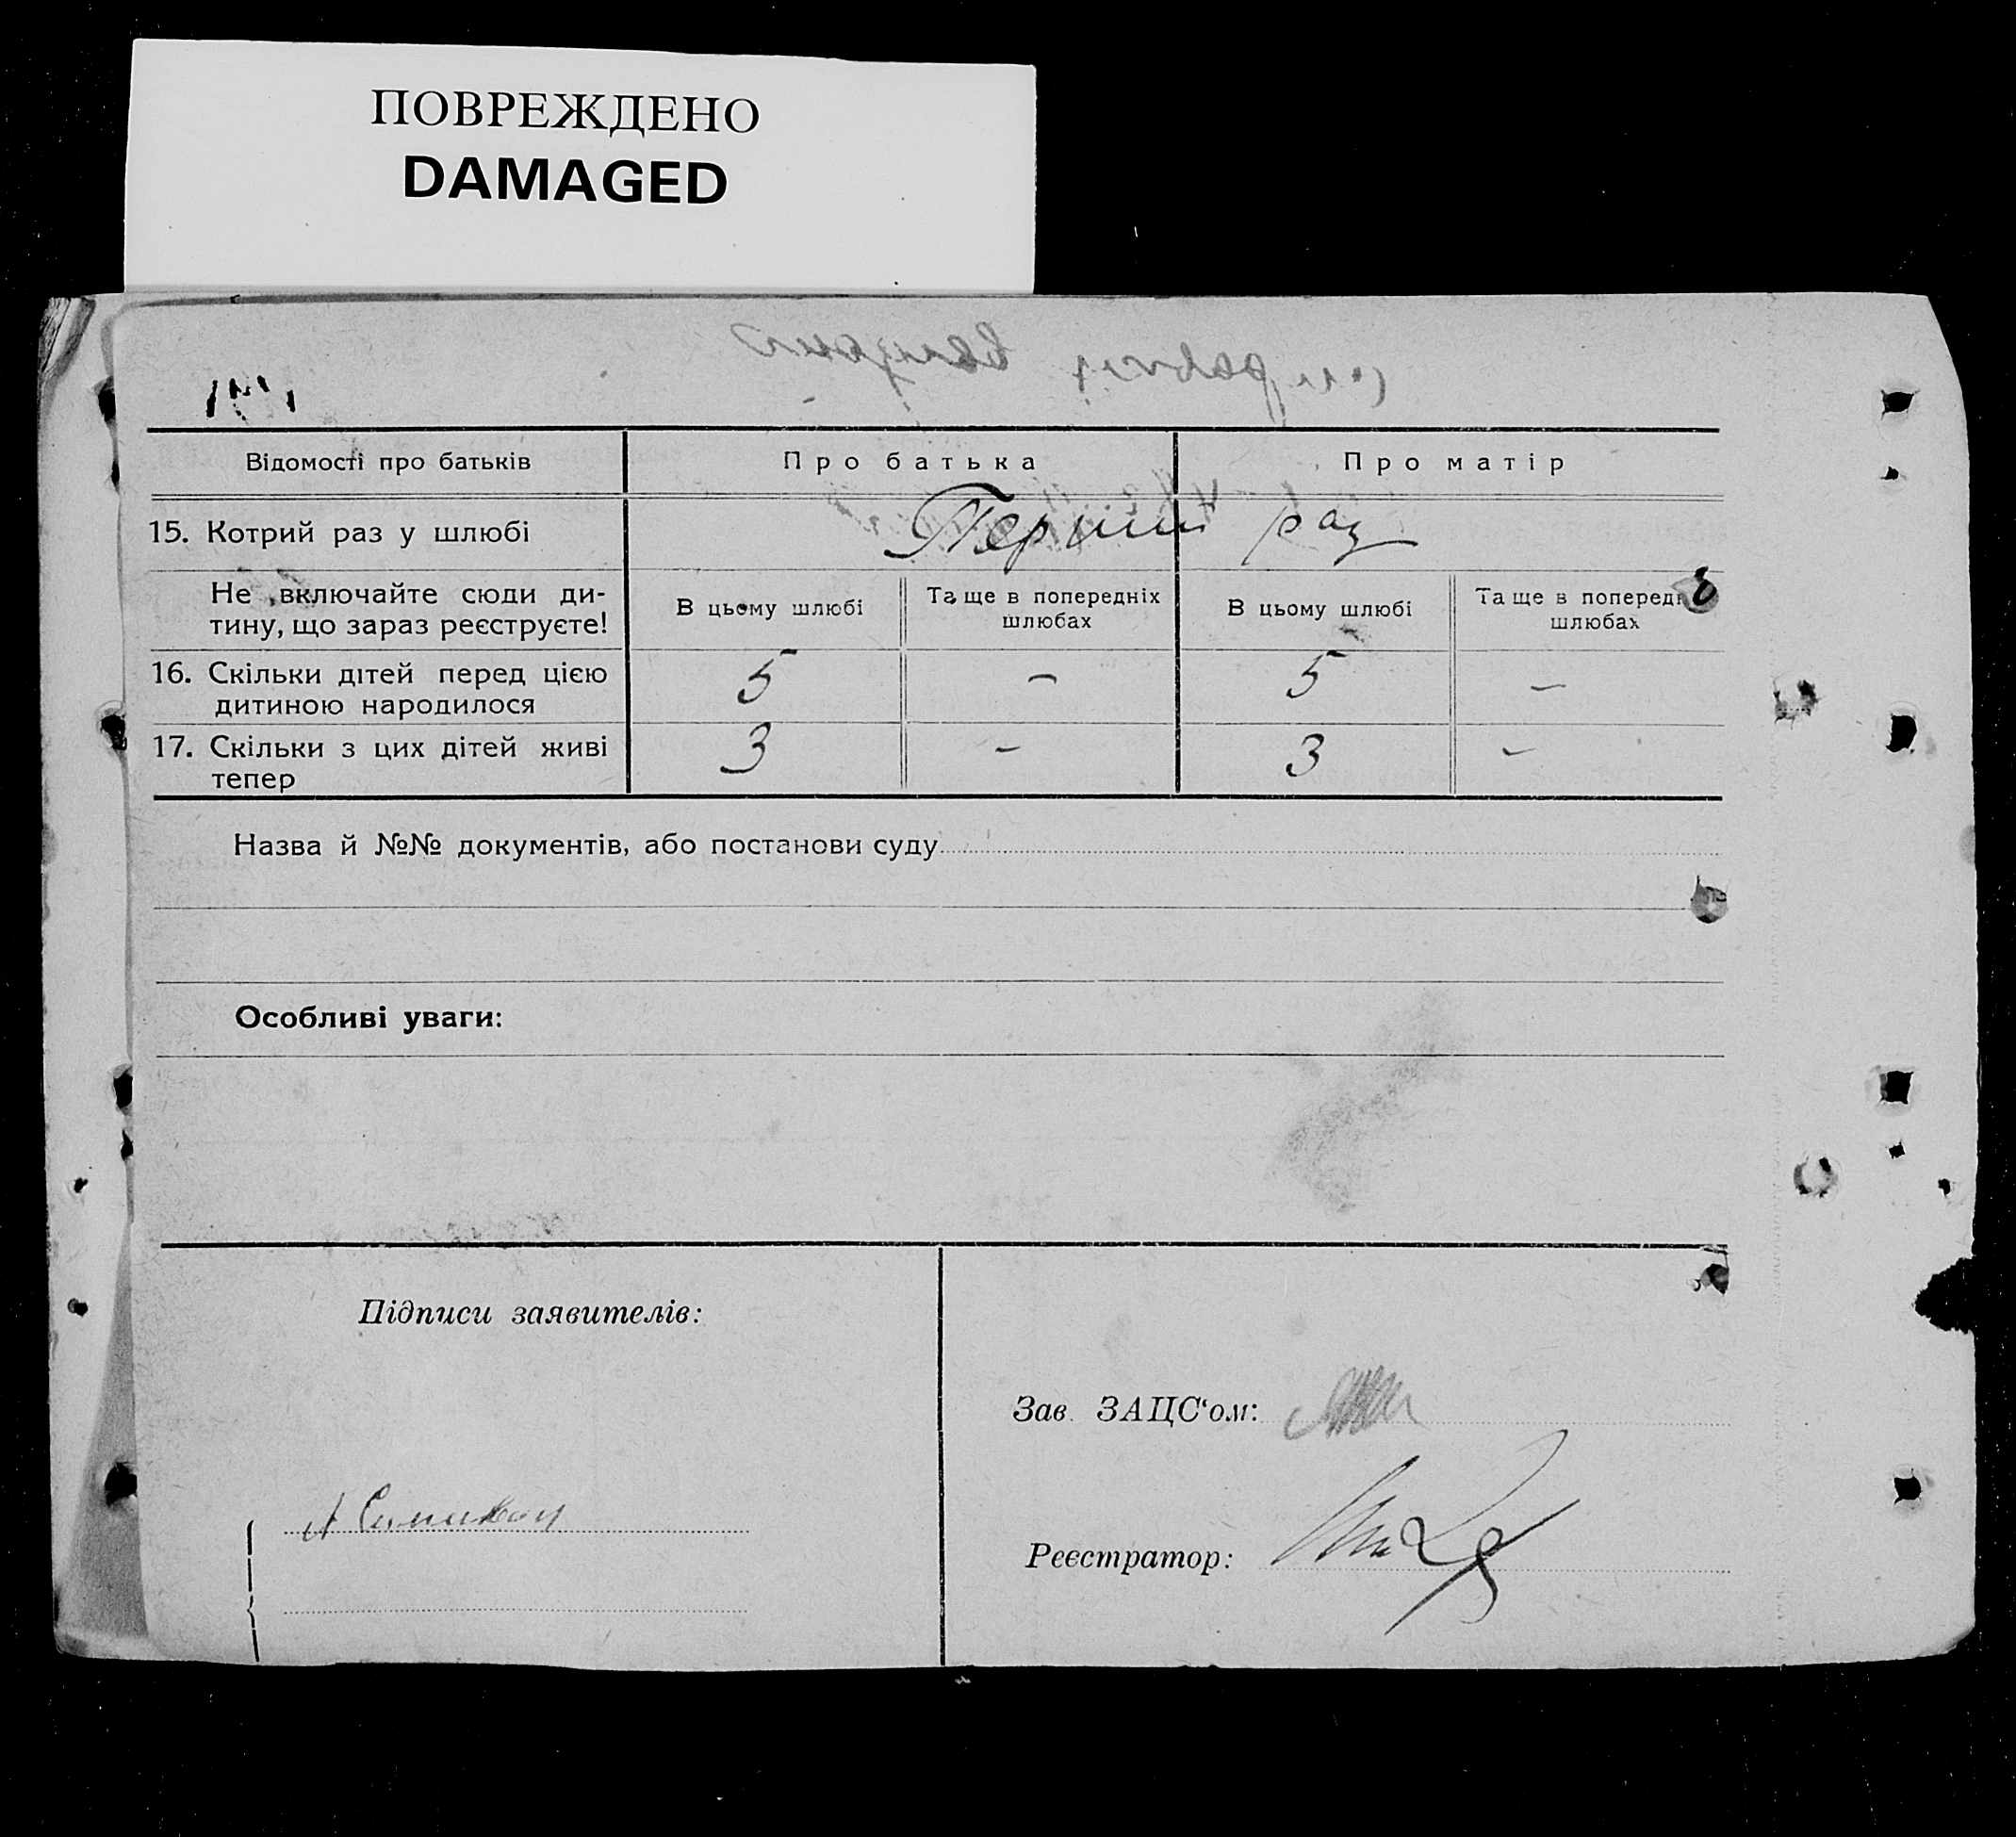 ПОВРЕЖДЕНО
DAMAGED
Відомості про батьків
Про батька
Про матір
15. Котрий раз у шлюбі
Перший раз
Не включайте сюди ди-
тину, що зараз реєструєте!
В цьому шлюбі
Та ще в попередніх
шлюбах
В цьому шлюбі
Та ще в поперед
шлюбах
16. Скільки дітей перед цією
дитиною народилося
5 – 5 –
17. Скільки з цих дітей живі
тепер
3 – 3 –
Назва й №№ документів, або постанови суду
Особливі уваги:
Підписи заявителів:
Зав. ЗАЦС‘ом:
Реєстратор: